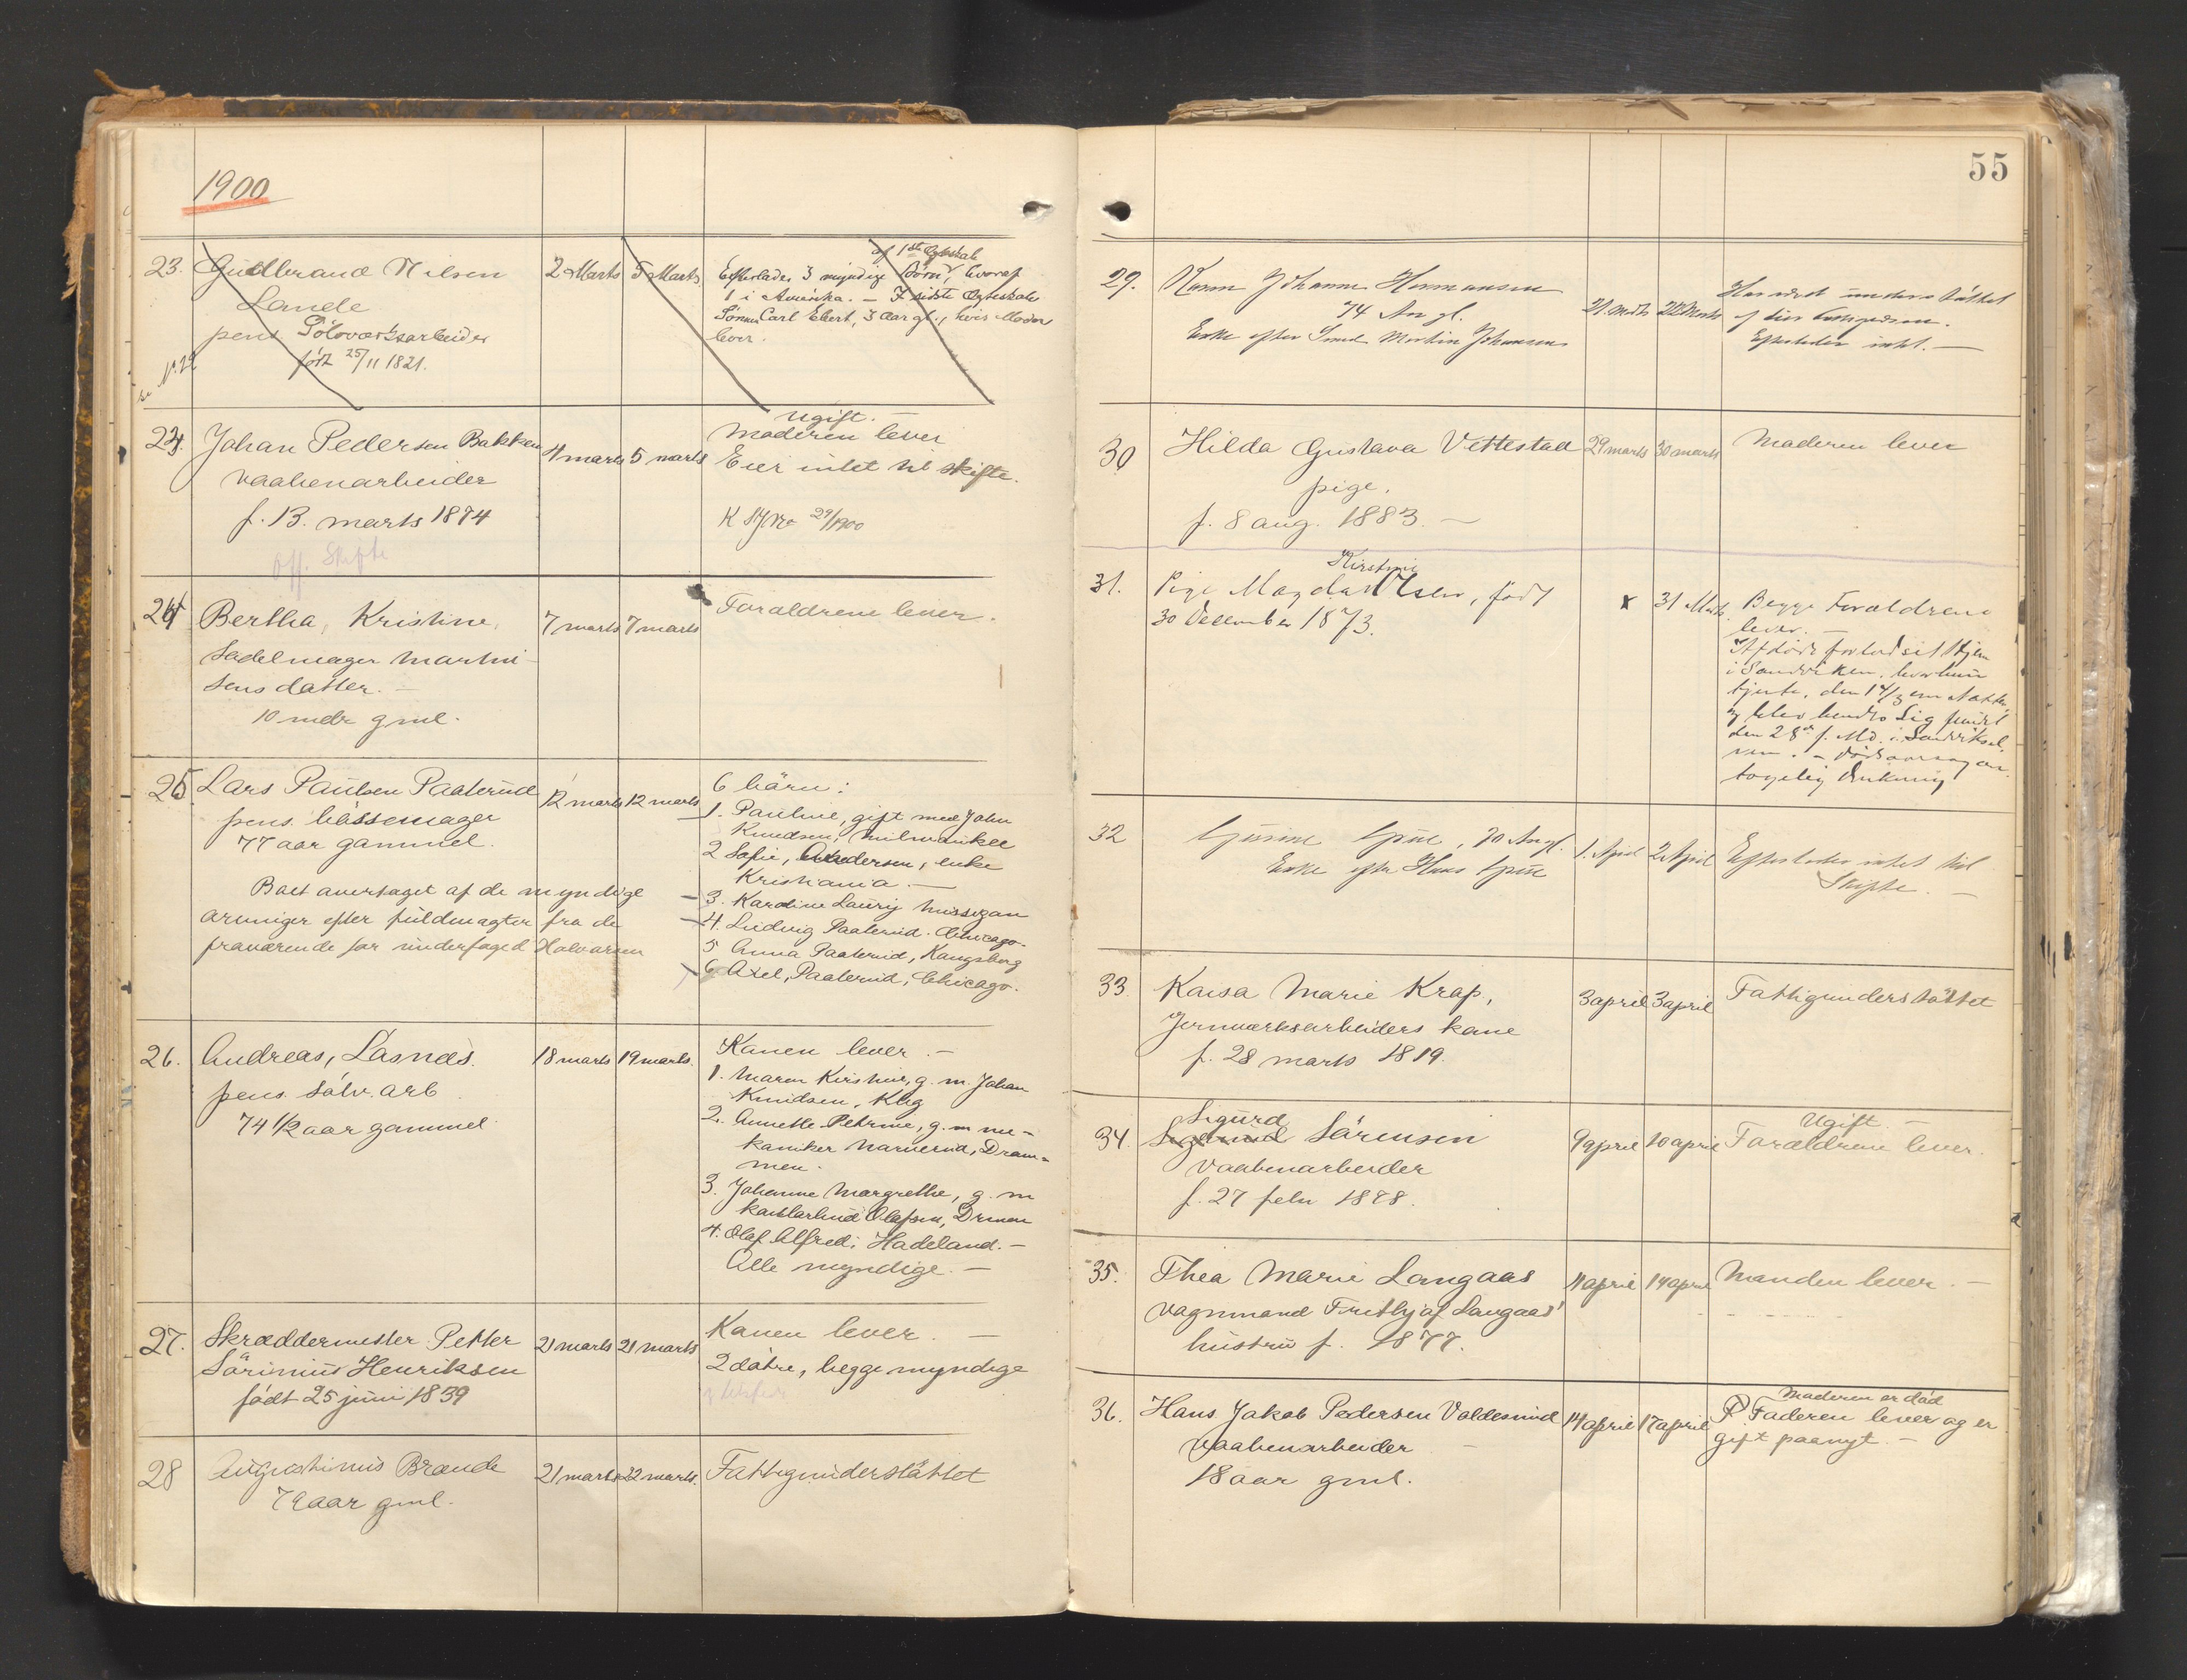 1900
23. Gudbrand Nilsen
Lande
pens. Sölvværksarbeider
født 25/11 1821.
se No. 22
2 Marts
5 Marts
af 1ste Egteskab
Efterlader 3 myndige Börn, hvoraf
1 i Amerika. — I sidste Egteskab
Sönnen Carl Ebert, 3 Aar gl., hvis Moder
lever.
23. Johan Pedersen Bakken
vaabenarbeider
f. 13. marts 1874
Off. Skifte
4 marts
5 marts
Ugift. —
Moderen lever
Eier intet til skifte.
29/1900
24 Bertha, Kristine,
Sadelmager Martini-
sens datter. —
10 mdr gml.
7 marts
7 marts
Forældrene lever.
25 Lars Paulsen Paalerud
pens. bössemager
77 aar gammel.
Boet overtaget af de myndige
arvinger efter fuldmagter fra de
fraværende for undertaged Halvorsen
12 marts
12 marts
6 börn:
1. Pauline, gift med John
Knudsen, Milwaukee
2 Sofie, Andersen, enke
Kristiania. —
3. Karoline Laurig Missigan
4. Ludvig Paalerud. Chicago.
5 Anna Paalerud, Kongsberg
6 Axel, Paalerud, Chicago.
26. Andreas, Lasnæs.
pens. sölv. arb
74 1/2 aar gammel
18 marts
19 marts.
Konen lever. —
1. Maren Kirstine, g. m. Johan
Knudsen, Kbg
2. Annette Petrine, g. m me-
kaniker Narverud, Dram-
men.
3. Johanne Margrethe, g. m
Olafsen, Drmen
4. Olaf Alfred, Hadeland. —
Alle myndige. —
27. Skræddermester Petter
Sörinius Henriksen
født 25 juni 1839
21 marts
21 marts
Konen lever. —
2 döttre, begge myndige
28 Augustinus Brænde
79 aar gml.
21 marts
22 marts.
Fattigunderstöttet
55
29. Karen Johanne Hermansen
74 Aar gl.
Enke efter Smed Martin Johansen
21. Marts
22 Marts
Har været understöttet
af
Efterlader intet. —
30 Hilda Gustava Vettestad
pige.
f. 8 aug. 1883. —
29 marts
30 marts
Moderen lever
31. Kirstine
Pige Magda Olsen, født
30 December 1873.
x
31 Marts
Begge Forældrene
lever. —
Afdøde forlod sit Hjem
i Sandviken, hvor hun
tjente, den 14/3 om Natten
og blev hendes Lig fundet
den 28de f. Md. i Sandviksel-
ven. — Dödsaarsag an-
tagelig Drukning
32 Gurine Grue, 70 Aar gl.
Enke efter Hans Grue
1. April
2 April
Efterlader intet til
Skifte. —
33. Kaisa Marie Krap,
Jernværksarbeiders kone
f. 28 marts 1819.
3 april
3 april
Fattigunderstöttet
34. Sigurd
Sigurd Sörensen
Vaabenarbeider
f. 27 febr 1878.
9 april
10 april
Ugift. —
Forældrene lever.
35. Thea Marie Langaas
vognmand Fritbjof Langaas'
hustru f. 1877.
11 april
14 april
Manden lever. —
36. Hans Jakob Pedersen Voldesrud
Vaabenarbeider —
18 aar gml.
14 april
17 april
Moderen er död
Faderen lever og er
gift paanyt. —